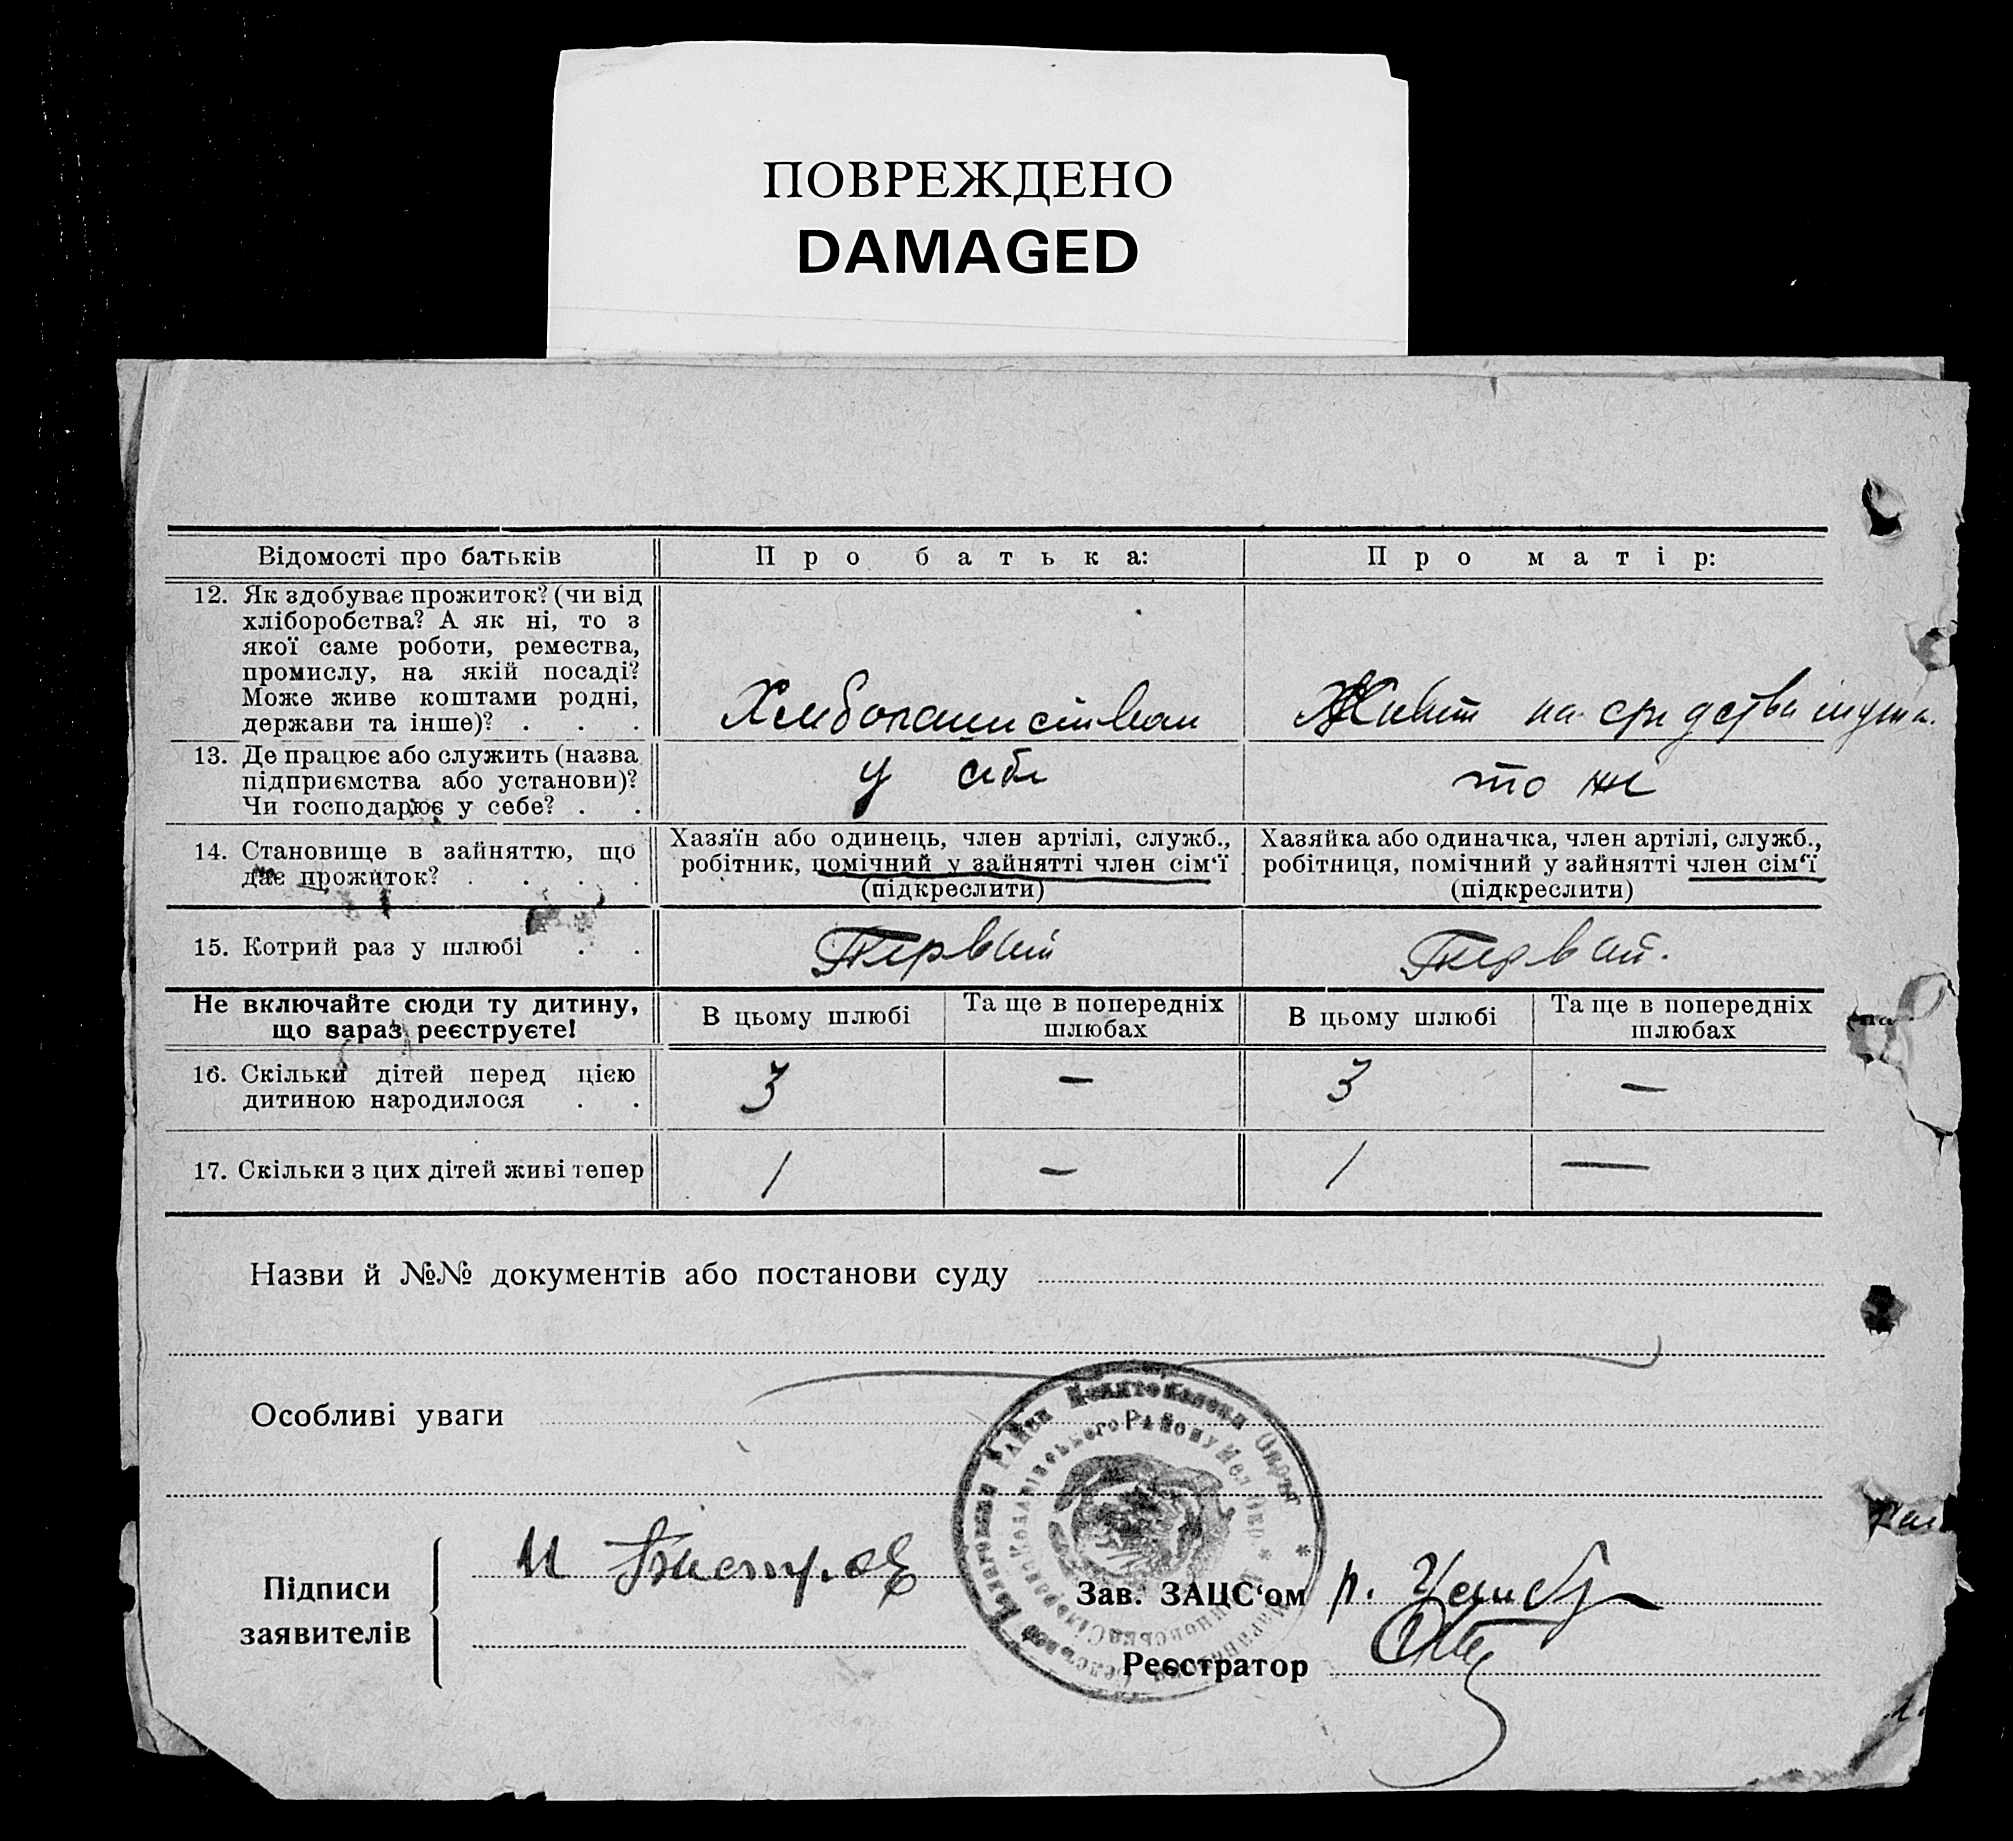 ПОВРЕЖДЕНО
DAMAGED
Відомості про батьків
Про батька:
Про матір:
12. Як здобуває прожиток? (чи від
хліборобства? А як ні, то з
якої саме роботи, ремества,
промислу, на якій посаді?
Може живе коштами родні,
держави та інше)? . . .
Хлебопашеством
Живет на средства мужа.
13. Де працює або служить (назва
підприємства або установи)?
Чи господарює у себе? . .
у себе
то же
14. Становище в зайняттю, що
дає прожиток? . . . .
Хазяїн або одинець, член артілі, служб.,
робітник, помічний у зайнятті член сім‘ї
(підкреслити)
Хазяйка або одиначка, член артілі, служб.,
робітниця, помічний у зайнятті член сім‘ї
(підкреслити)
15. Котрий раз у шлюбі . .
Первый
Первый.
Не включайте сюди ту дитину,
що зараз реєструєте!
В цьому шлюбі
Та ще в попередніх
шлюбах
В цьому шлюбі
Та ще в попередніх
шлюбах
16. Скільки дітей перед цією
дитиною народилося . .
3
—
3
—
17. Скільки з цих дітей живі тепер
1
—
1
—
Назви й №№ документів або постанови суду
Особливі уваги
Підписи
заявителів
И
Зав. ЗАЦС‘ом
р.
Реєстратор